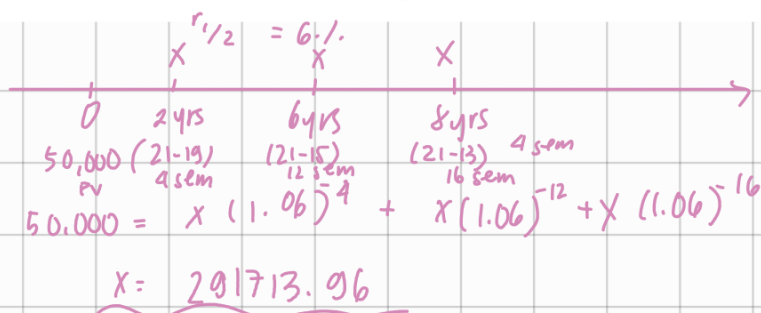 r₁/₂ = 6%
X X X
0 2 yrs 6yrs 8yrs
50,000 (21-19) (21-15) (21-13) 4 sem
PV 4 sem 12 sem 16 sem
50.000 = X (1.06)⁻⁴ + X(1.06)⁻¹² + X (1.06)⁻¹⁶
X= 291713.96